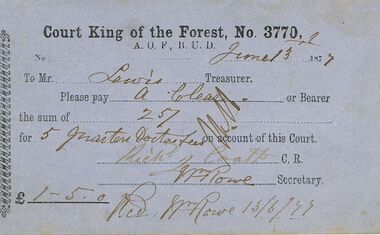 Court King of the Forest, No. 3770,
A. O. F., B. U. D.
No June 13 1877
To Mr. Lewis Treasurer.
Please pay A Clear or Bearer
the sum of 25/
for 5 Quarters Doctors fees on account of this Court.
Richd C. R.
Wm Rowe Secretary.
£ 1-5.0 Recd Wm Rowe 13/6/77